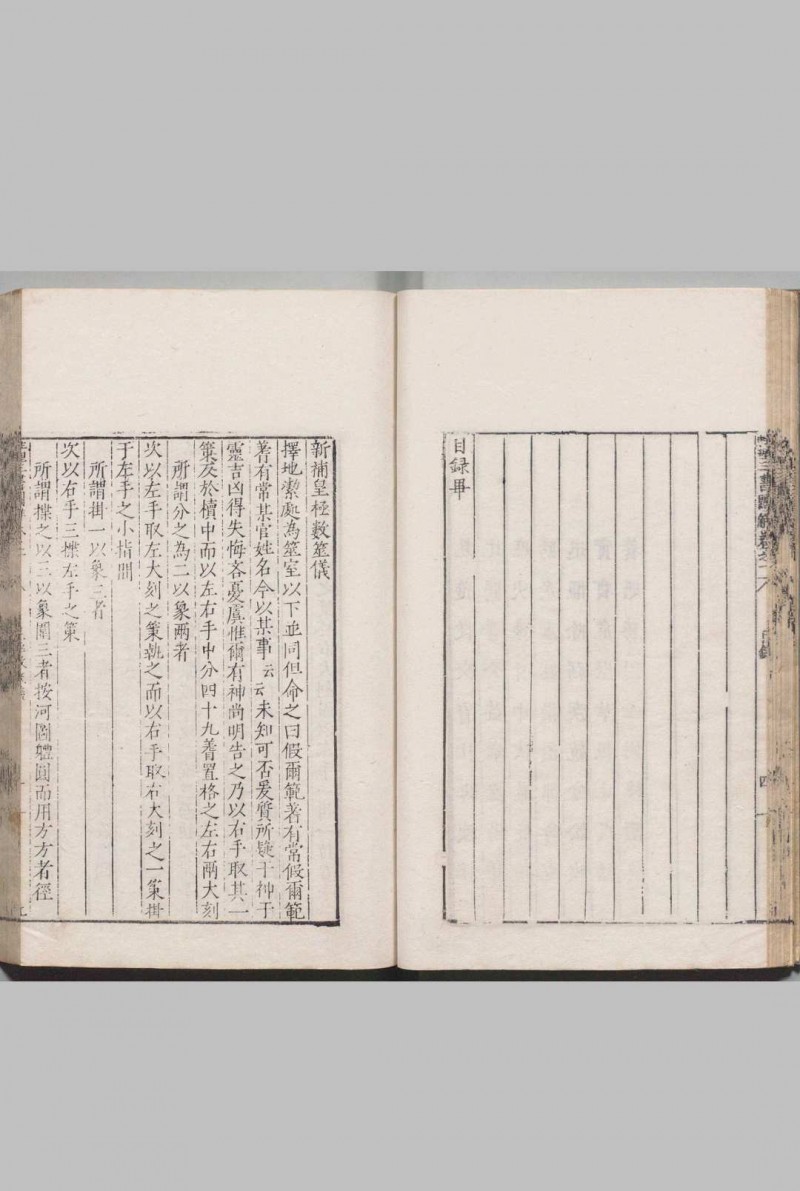 目録畢
目錄
四
新補皇極數筮儀
擇地潔處為筮室以下並同但命之曰假爾範著有常假爾範
著有常某官姓名今以某事云云未知可否爰質所疑于神于
靈吉凶得失悔吝憂虞惟爾有神尚明告之乃以右手取其一
策反於櫝中而以左右手中分四十九著置格之左右兩大刻
所謂分之為二以象兩者
次以左手取左大刻之策執之而以右手取右大刻之一策掛
于左手之小指間
所謂掛一以象三者
次以右手三揲左手之策
所謂揲之以三以象圍三者按河圖軆圓而用方方者徑